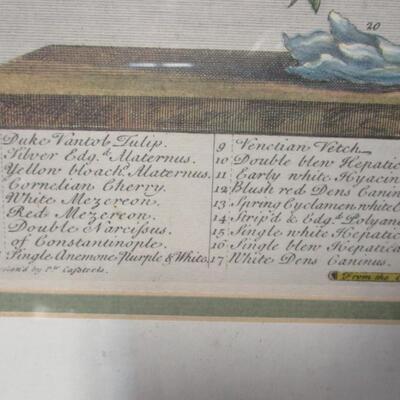 20
Duke Vantol Tulip.
Silver Edg.d Alaternus.
Yellow bloach. Alaternus.
Cornelian Cherry.
White Mezereon.
Red Mezereon.
Double Narcissus
of Constantinople.
Single Anemone Purple & White.
9 Venetian Vetch
10 Double blew Hepatic
11 Early white Hyacin
12 Blush red Dens Canin
13 Spring Cyclamen white
14 Strip'd & Edg.d Polyan
15 Single white Hepatic
16 Single blew Hepatica
17 White Dens Caninus.
by P.r Casteels
From the